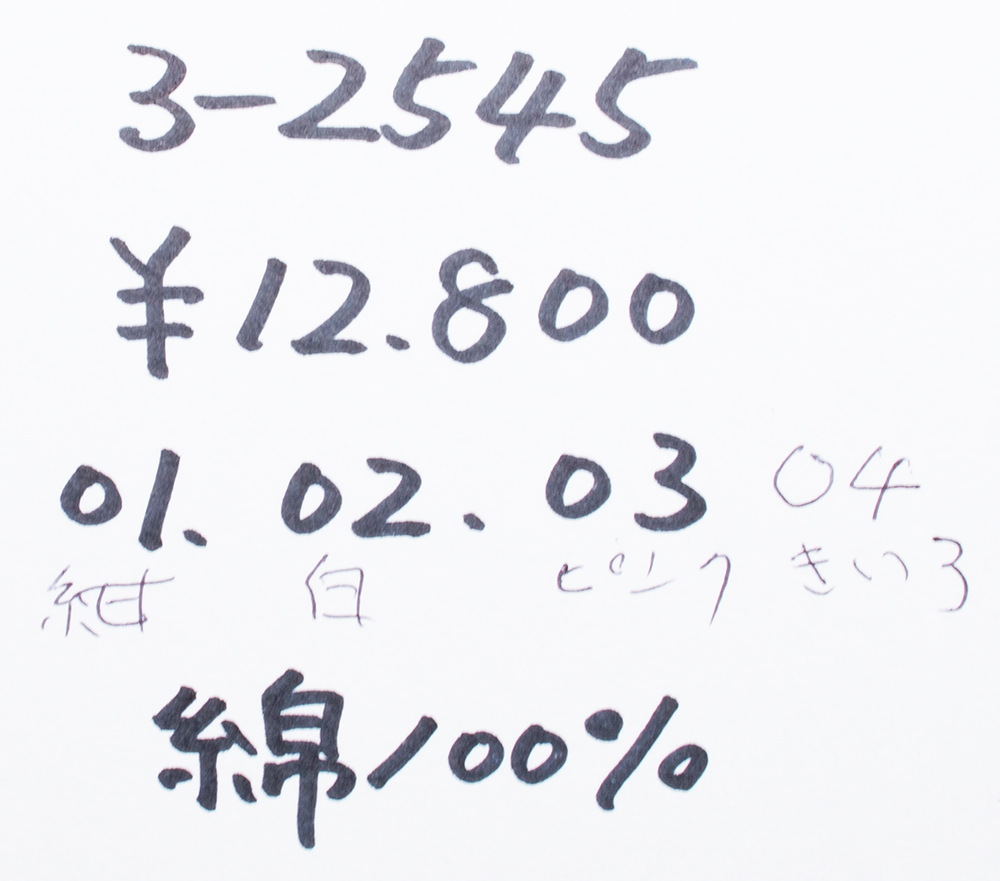 3-2545
¥12.800
01. 02. 03 04
紺 白 ピンク きいろ
綿100%